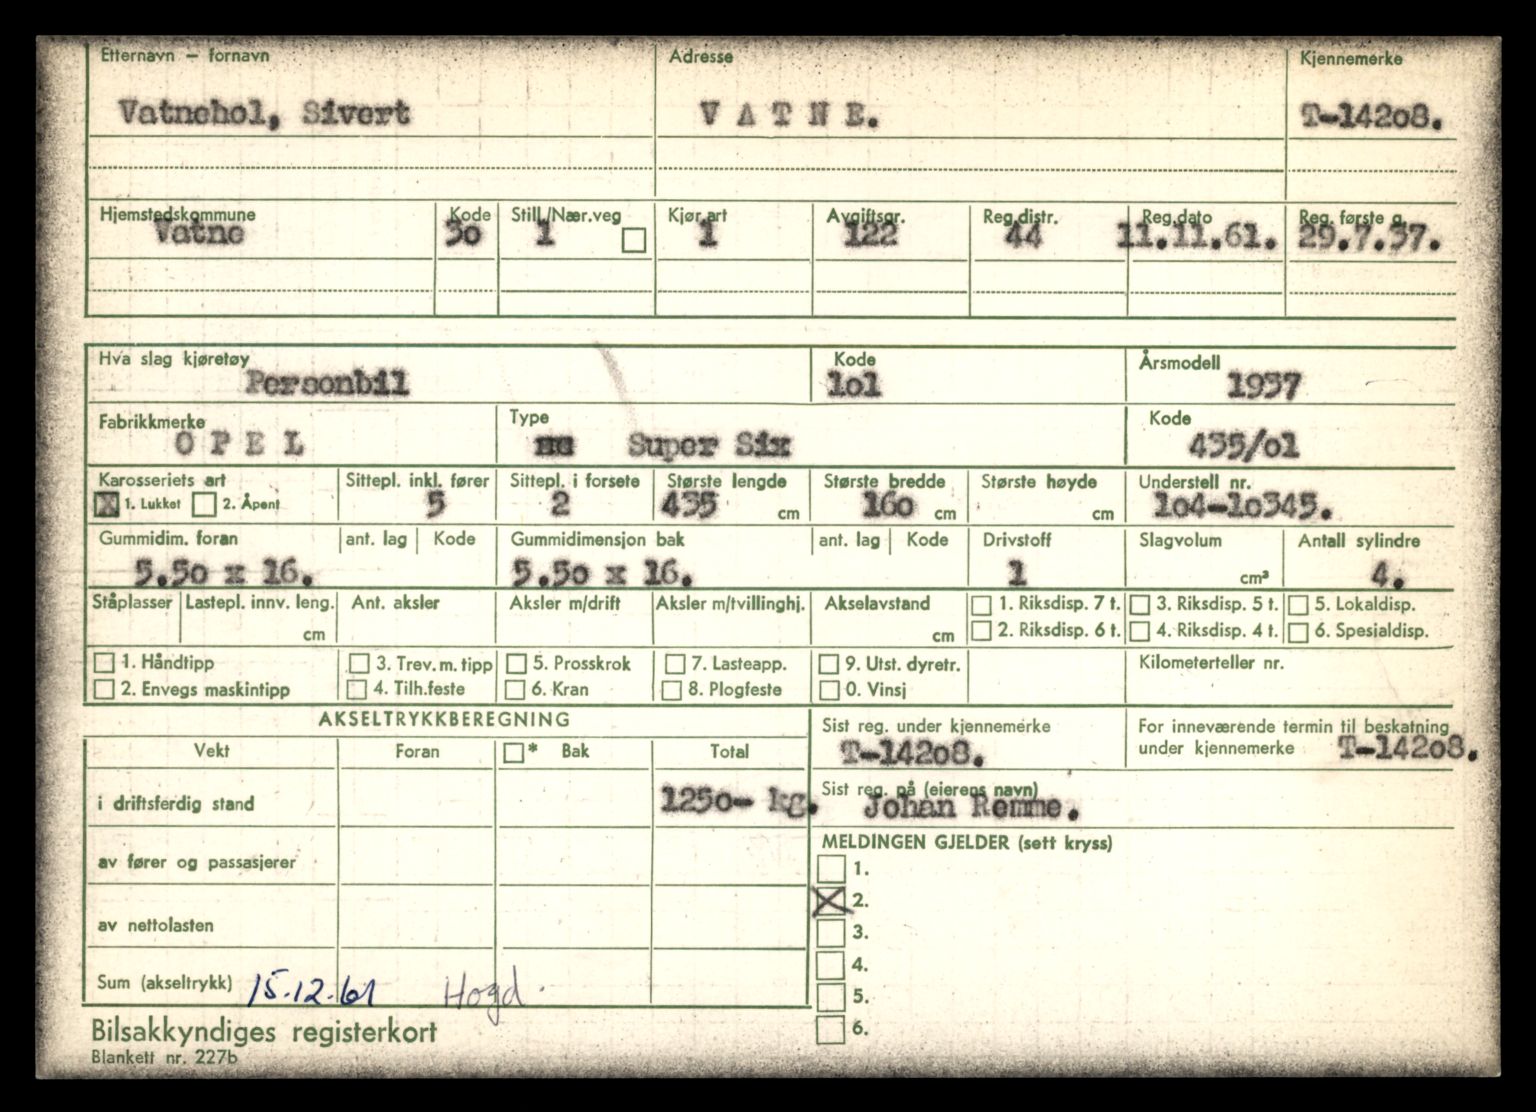 Etternavn — fornavn Adresse Kjennemerke
Vatnehol, Sivert V A T N E. T-14208.
Hjemstedskommune Kode Still./Nær.veg Kjør.art Avgiftsgr. Reg.distr. Reg.dato Reg. første g.
Vatne 30 1 1 122 44 11.11.61. 29.7.37.
Hva slag kjøretøy Kode Årsmodell
Personbil lol 1937
Fabrikkmerke Type Kode
O P E L Super Six 435/ol
Karosseriets art Sittepl. inkl. fører Sittepl. i forsete Største lengde Største bredde Største høyde Understell nr.
X 1. Lukket 2. Åpent 5 2 435 cm 16o cm cm lo4-lo345.
Gummidim. foran ant. lag Kode Gummidimensjon bak ant. lag Kode Drivstoff Slagvolum Antall sylindre
5.5o x 16. 5.5o x 16. 1 cm³ 4.
Ståplasser Lastepl. innv. leng. Ant. aksler Aksler m/drift Aksler m/tvillinghj. Akselavstand 1. Riksdisp. 7 t. 3. Riksdisp. 5 t. 5. Lokaldisp.
cm cm 2. Riksdisp. 6 t. 4. Riksdisp. 4 t. 6. Spesjaldisp.
1. Håndtipp 3. Trev. m. tipp 5. Prosskrok 7. Lasteapp. 9. Utst. dyretr. Kilometerteller nr.
2. Envegs maskintipp 4. Tilh.feste 6. Kran 8. Plogfeste 0. Vinsj
AKSELTRYKKBEREGNING Sist reg. under kjennemerke For inneværende termin til beskatning
Vekt Foran * Bak Total T-142o8. under kjennemerke T-142o8.
i driftsferdig stand 125o- kg. Sist reg. på (eierens navn)
Johan Remme.
MELDINGEN GJELDER (sett kryss)
av fører og passasjerer 1.
X 2.
av nettolasten 3.
4.
Sum (akseltrykk) 15.12.61 Hogd. 5.
6.
Bilsakkyndiges registerkort
Blankett nr. 227b